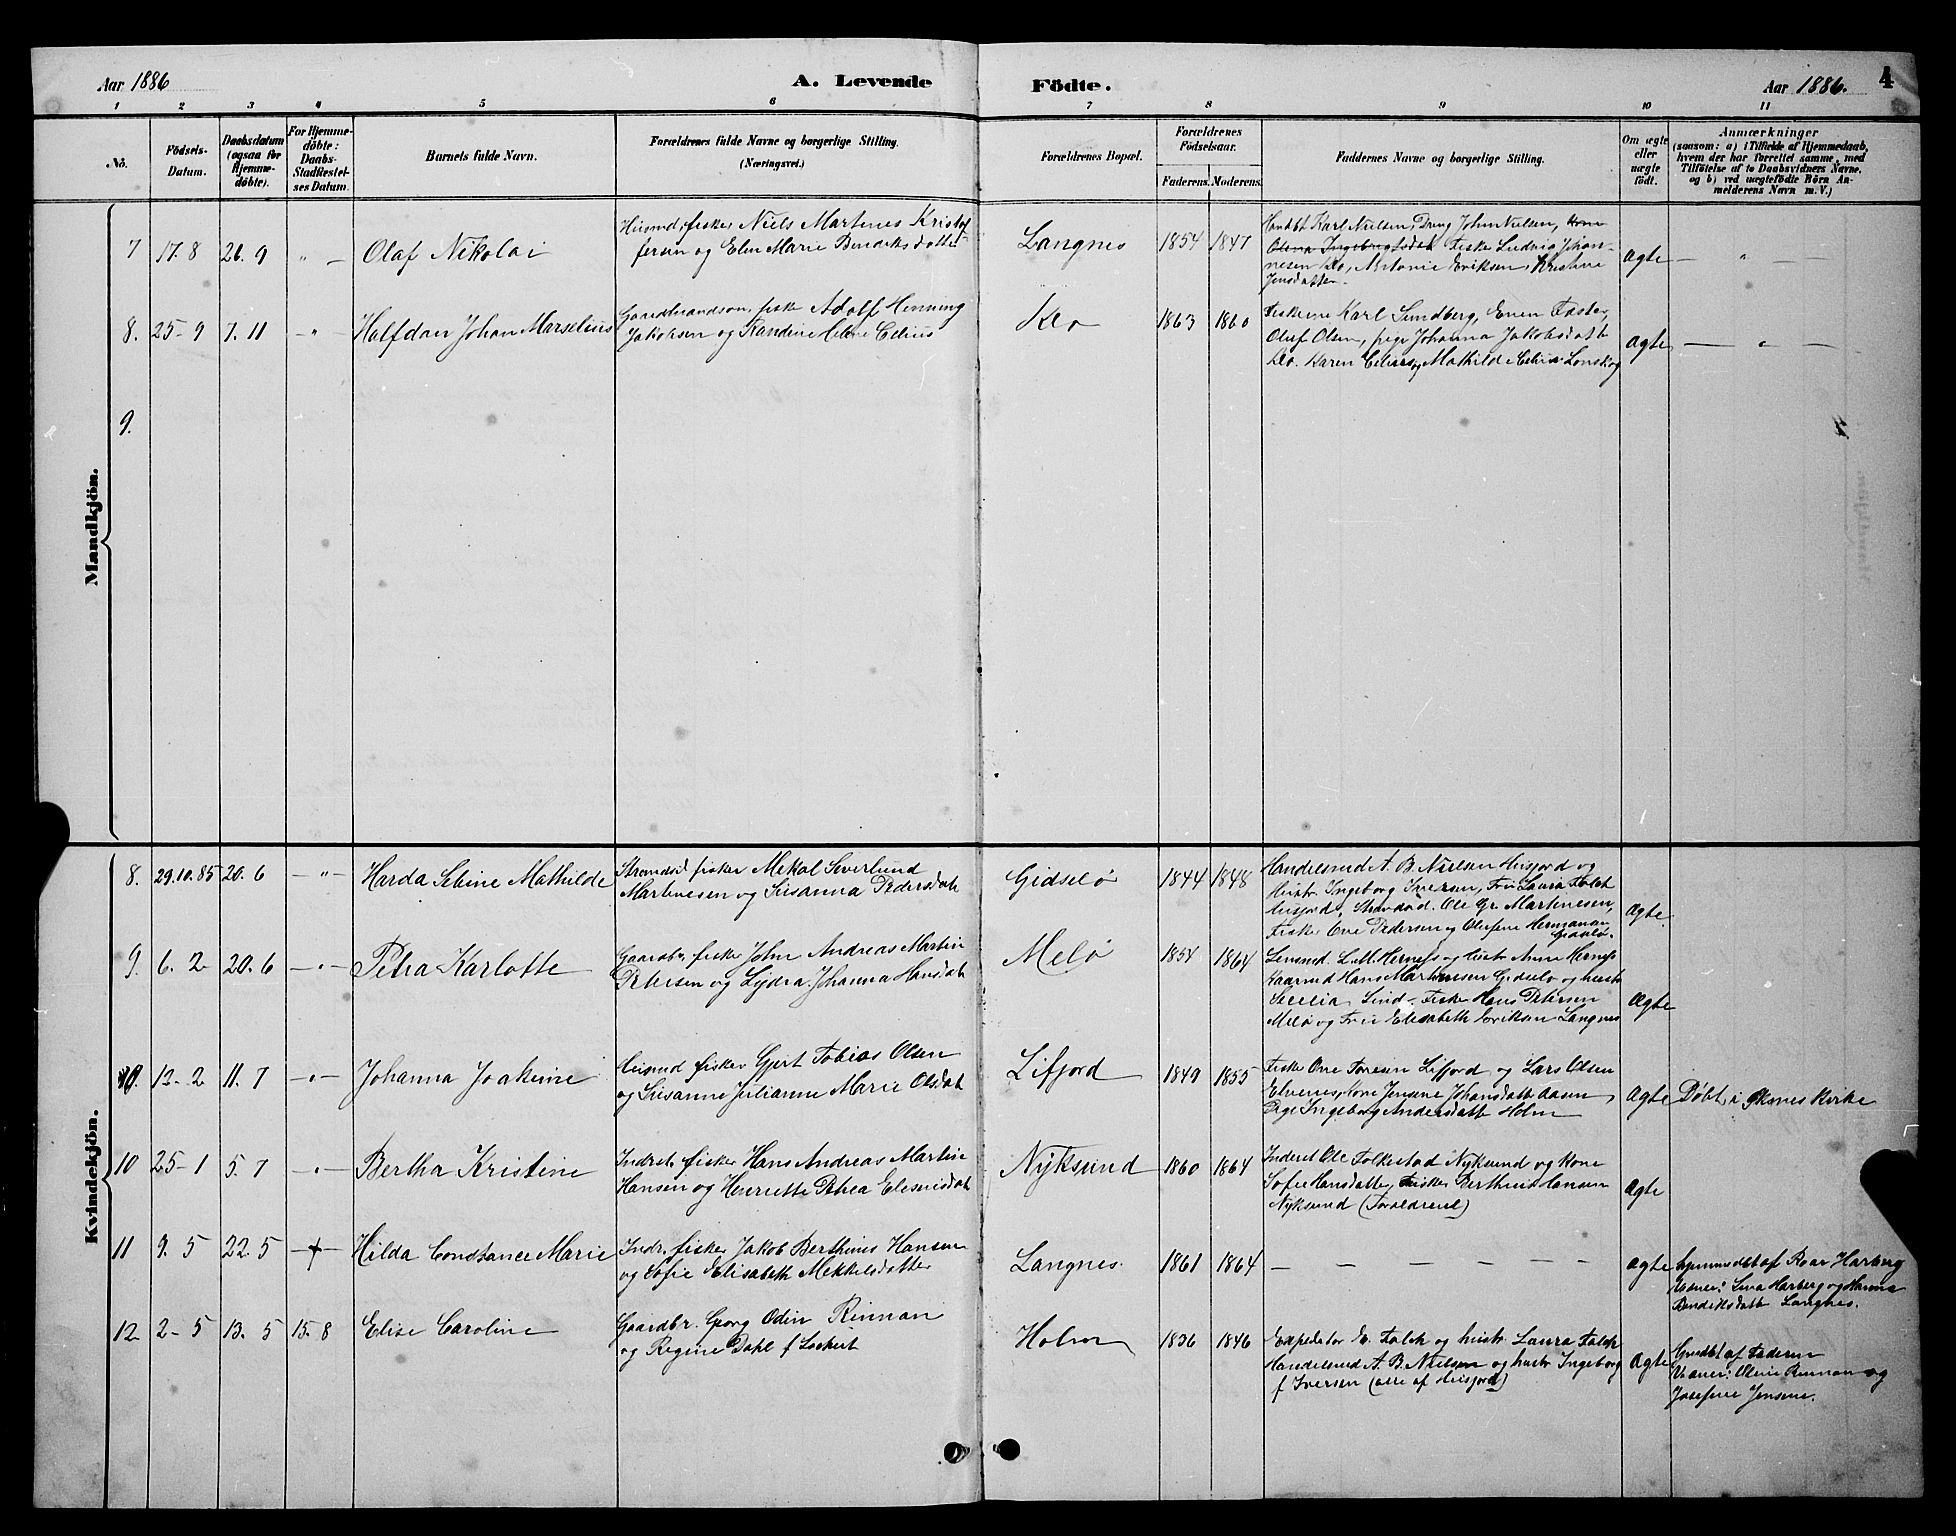 Aar 1886
A. Levende
Födte.
Aar 1886.
4
1 2 3 4 5 6 7 8 9 10 11
No.
Födsels-
Datum.
Daabsdatum
(ogsaa for
Hjemme-
döbte).
For Hjemme-
döbte:
Daabs-
Stadfæstel-
ses Datum.
Barnets fulde Navn.
Forældrenes fulde Navne og borgerlige Stilling.
(Næringsvei.)
Forældrenes Bopæl.
Forældrenes
Födselsaar.
Faderens. Moderens.
Faddernes Navne og borgerlige Stilling.
Om ægte
eller
uægte
födt.
Anmærkninger
(saasom: a) i Tilfælde af Hjemmedaab,
hvem der har forrettet samme, med
Tilföielse af to Daabsvidners Navne.
og b) ved uægtefödte Börn An-
melderens Navn m. V.)
Mandkjön.
7 17. 8 26. 9 " — Olaf Nikolai
Husmd, fisker Niels Martenes Kristof
fersen og Elen Marie Bendiksdatter
Langnes 1854 1847
Karl Nielsen, Dreng John Nielsen, Kone
Olena Ingebrigtsdat Fisker Ludvig Johan-
nesen Klo, Antonie Eriksen, Kristine
Jensdatter
Ægte — " — —
8. 25-9 7. 11 — " Halfdan Johan Marselius
Gaardmandssøn, fisker Adolf Henning
Jakobsen og Handine Helene Celius
Klo 1863 1860
Fiskerne Karl Sundberg, Enen
Oluf Olsen, pige Johanna Jakobsdatt
Klo. Karen Celius og Mathilde Celius
Ægte — " —
9.
Kvindekjön.
8. 29.10.85 20. 6 — " — Harda Sebine Mathilde
Strandsd fisker Mekal Severlund
Martenesen og Susanna Pedersdatt
Gidselø 1844 1848
Handelsmd A. B. Nielsen Husfjord og
Hustr. Ingeborg Iversen, Fru Laura Falch
Husfjord, Strandsd. Ole Gr. Martinesen,
Fisker Ove Pedersen og Olufine Hermanan
Gidselø.
Ægte
9. 6. 2 20. 6 — " — Petra Karlotte
Gaardbr. fisker John Andreas Martin
Petersen og Lydia Johanna Hansdatt
Melø 1854 1864
Lensmd. L. M. Herness og Hustr Anne Herness
Kaarmd Hans Martinesen Gidselø og hustr
Secelia Fisker Hans Petersen
Melø og Fru Elisabeth Eriksen Langnes
Ægte
10. 12-2 11. 7 — " — Johanna Joakime
Husmd fisker Gjert Tobias Olsen
og Susanne Julianne Marie Olsdat
Lifjord 1849 1855
Fisker Ove Toresen Lifjord og Lars Olsen
Elvenes, Kone Jensine Johansdatt Aasen,
Pige Ingeborg Andersdatt Holm
Ægte Døbt i Øksnes Kirke
10 25-1 5. 7 — " — Bertha Kristine
Indrst. fisker Hans Andreas Martin
Hansen og Henriette Pethea Elesersdat
Nyksund 1860 1864
Inderst Ole Falkestad Nyksund og Kone
Sofie Hansdatter, Fisker Berthius Hansen
Nyksund (Foraldrene)
Ægte
11 9. 5 22. 5 Hilda Constance Marie
Indr. fisker Jakob Berthinus Hansen
og Sofie Elisabeth Mekkelsdatter
Langnes 1861 1864
— — — — — —
Ægte
hjemmedbt af Roar Harberg
Vidner: Lina Harberg og Hanna
Bendiksdatt Langnes.
12 2-5 13. 5 15. 8 Elise Caroline
Gaardbr. Georg Odin Rinnan
og Regine Dahl f Lockert
Holm 1836 1846
Expeditør E. Falch og hustr. Laura Falch
Handelsmd A. B. Nielsen og hustr Ingeborg
f Iversen (alle af Husfjord)
Ægte
af Faderen
Vidner: Oline Rinnan og
Josefine Jensine.